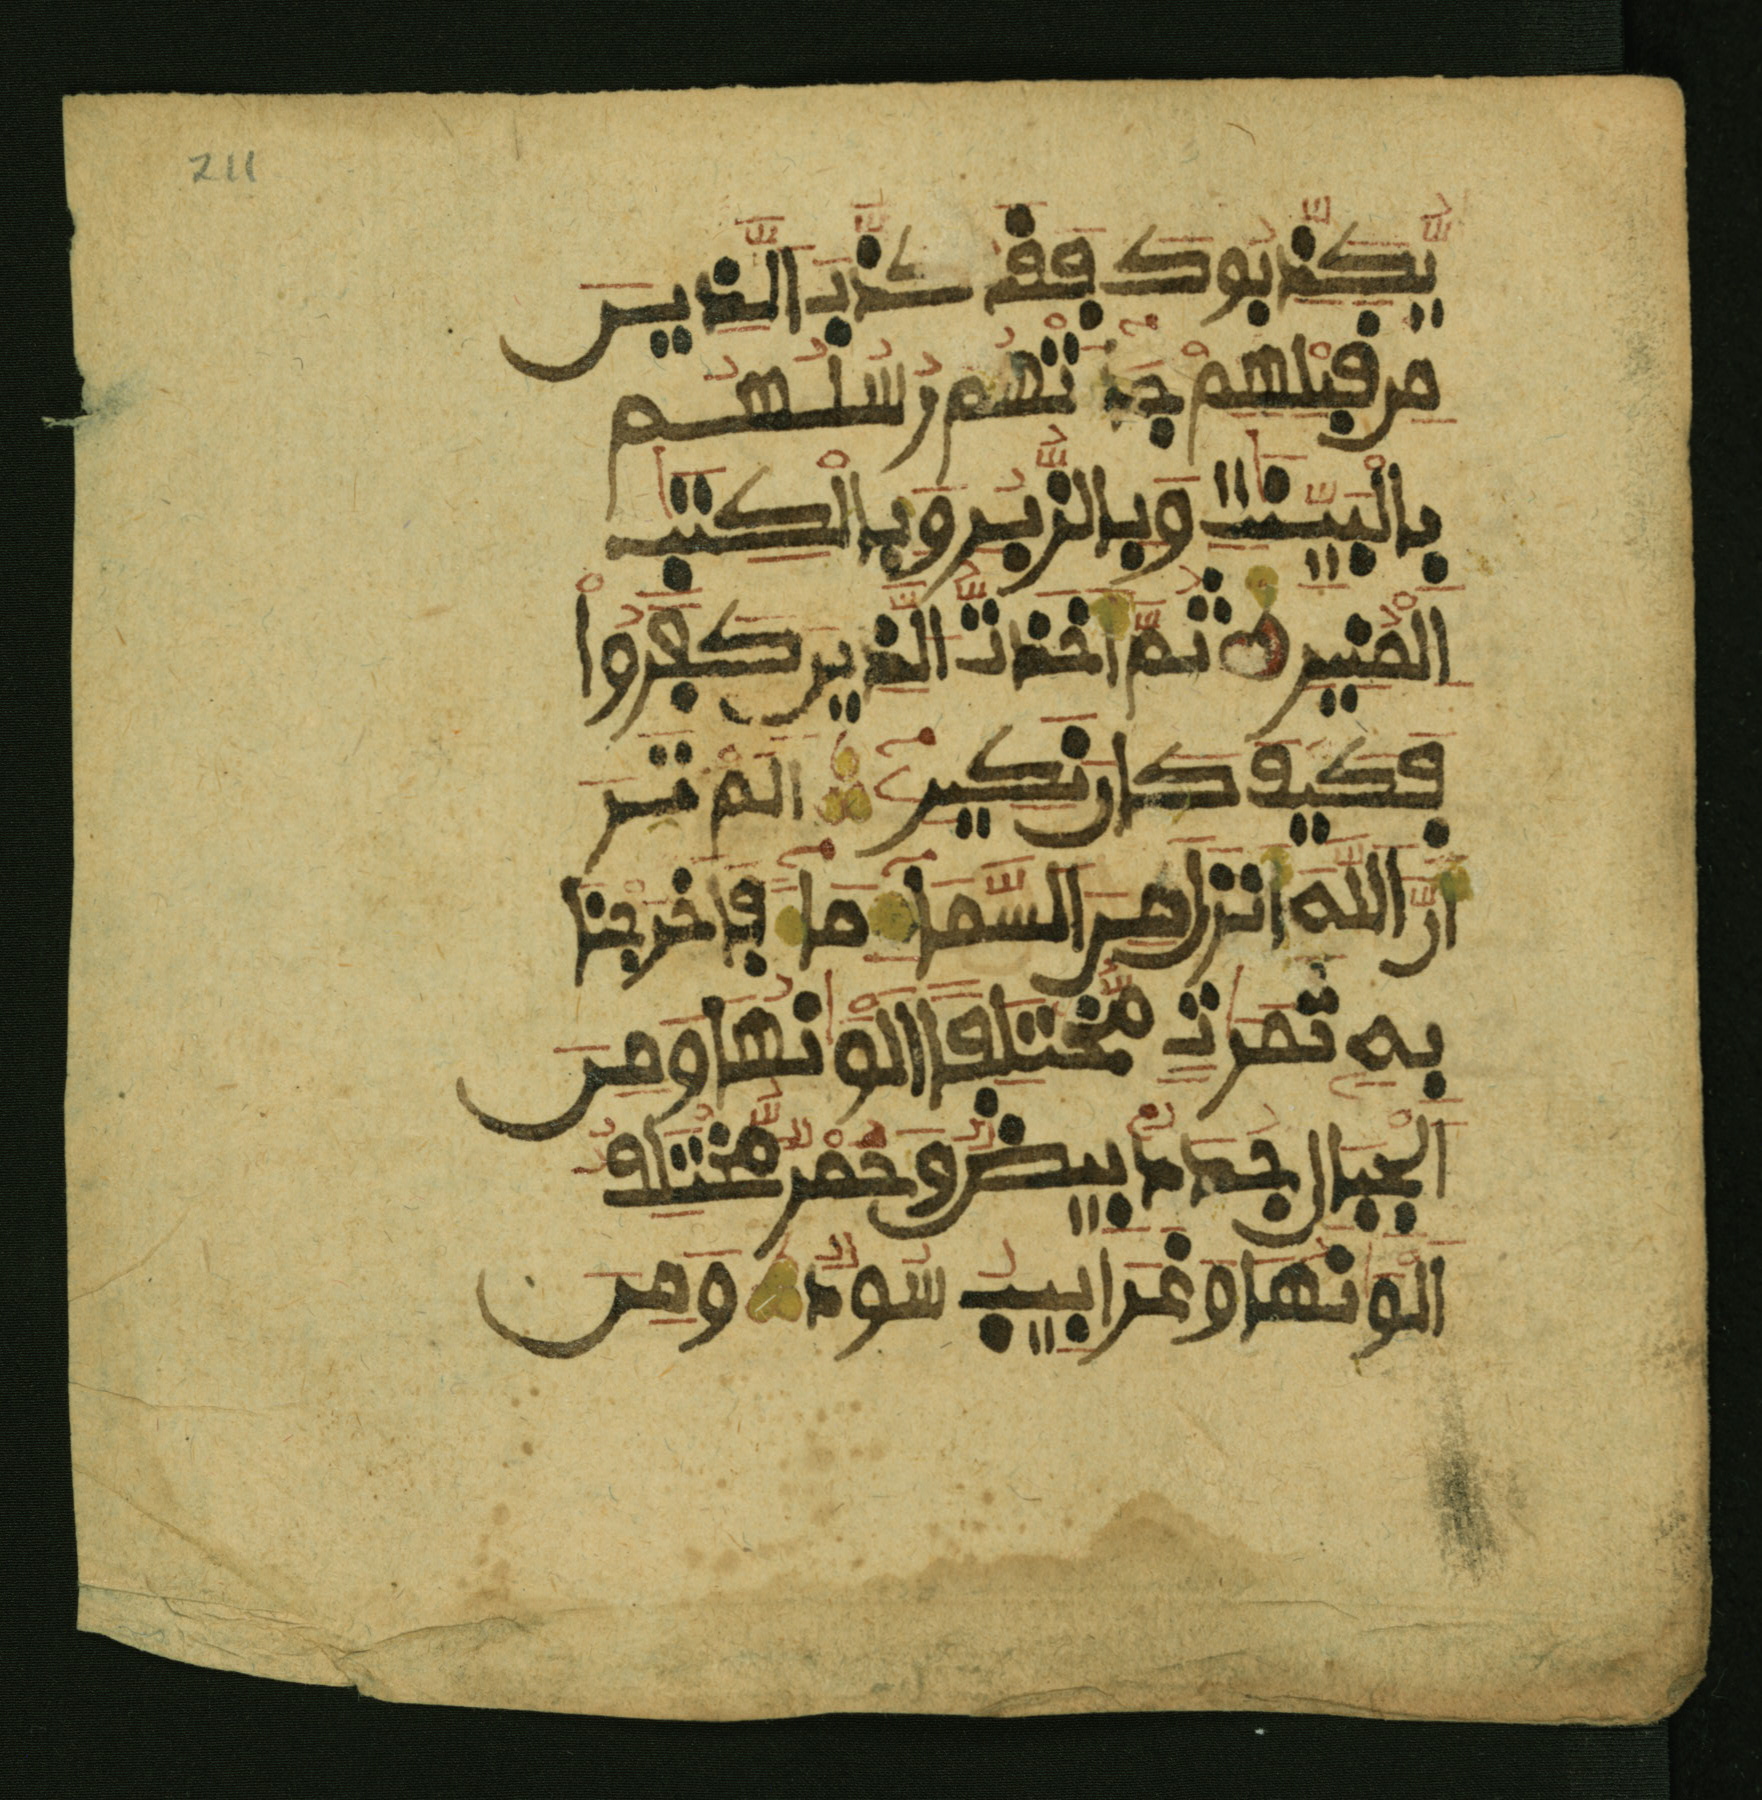 211
يُّكَذِّبُوكَ فَقَد كَّذَّبَ الَّذِينَ
مِن قَبْلِهِمْ جَآءَتْهُمْ رُسُلُهُم
بِالْبَيِّنَٰتِ وَبِالزُّبُرِ وَبِالْكِتَٰبِ
الْمُنِيرِ ثُمَّ أَخَذتُّ الَّذِينَ كَفَرُواْ
فَكَيْفَ كَانَ نَكِيرِۦٓ أَلَمْ تَرَ
أَنَّ اللَّهَ أَنزَلَ مِنَ السَّمَآءِ مَآءً فَأَخْرَجْنَا
بِهِۦ ثَمَرَٰتٍ مُّخْتَلِفًا أَلْوَٰنُهَا وَمِنَ
الْجِبَالِ جُدَدٌ بِيضٌ وَحُمْرٌ مُّخْتَلِفٌ
أَلْوَٰنُهَا وَغَرَابِيبُ سُودٌ وَمِنَ